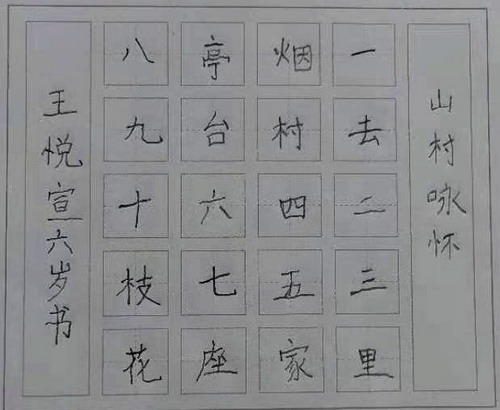 山村咏怀
一去二三里
烟村四五家
亭台六七座
八九十枝花
王悦宣六岁书